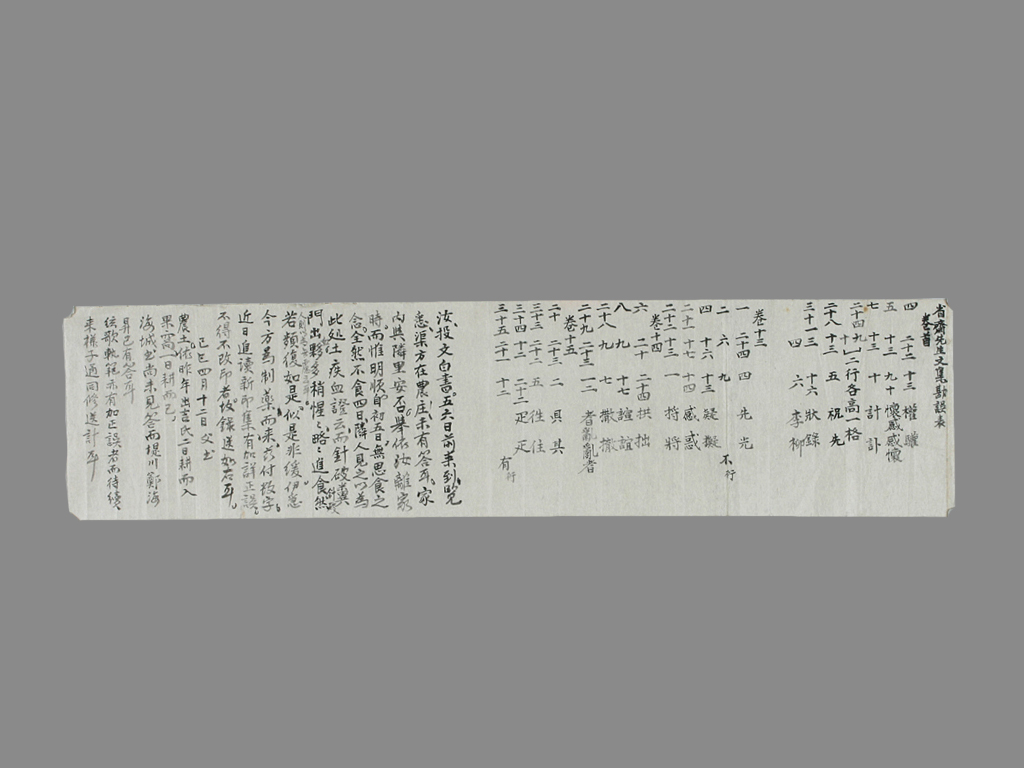 省齋先生文集勘誤表
卷首
四 二十二 十三 權 矔
五 十三 九十 懷感 感懷
七 十三 十 計 訃
二十四 九十 一二行各高一格
二十八 十三 五 祝 先
三十一 十三 十六 狀 錄
四 六 李 柳
卷十三
一 二十四 四 先 光
二 六 九 不行
四 十六 十三 疑 擬
二十一 十七 十四 感 惑
二十二 十三 一 持 將
卷十四
六 二十 二十四 拱 拙
八 九 十七 諠 誼
二十八 九 七 撒 撤
二十九 二十三 一二 者亂 亂者
卷十五
二十 二十三 二 俱 其
三十三 二十二 五 徃 住
三十四 十三 二十二 疋 疋
三十五 二十一 十三 有行
汝投文白書五六日前來到覽
悉渠方在農庄未有答耳家
內與隣里安否擧依汝離家
時而惟明順自初五日無思食之
念全然不食四日隣人見之以爲
此砋土疾血證云而針破糞
門出夥多稍惺々略々進食然
若頻復如是似是非緩伊急
今方爲制藥而來
近日進讀新印集有加詳正誤
不得不改印者故錄送如右耳
己巳四月十二日父書
農土依昨年出吉氏二日耕而入
果 一日耕而已
海城書尚未見答而堤川鄭海
昇已有答耳
絃歌軌範亦有加正誤者而待續
來樣子通同修送計耳